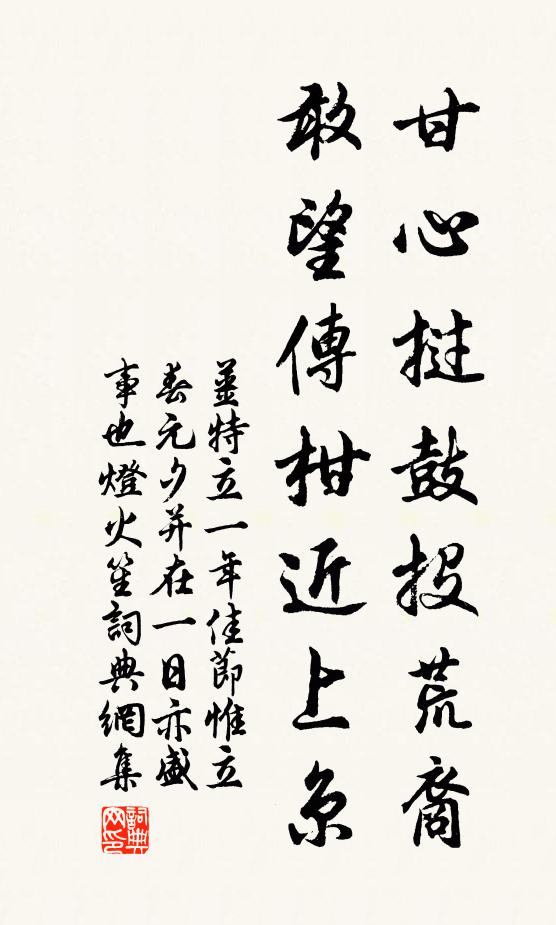 甘心撾鼓投荒裔
敢望傳柑近上京
薑特立一年佳節惟立
春元夕并在一日亦盛
事也燈火笙詞典網集
詞典网印